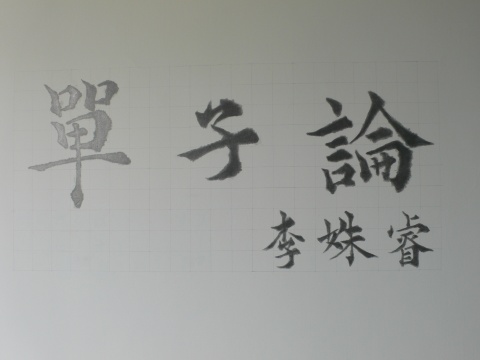 單子論
李姝睿